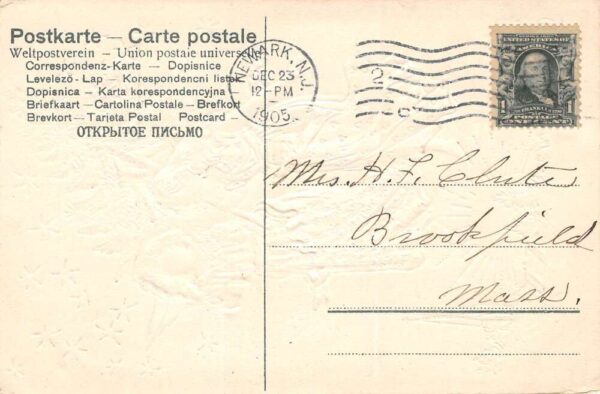 Postkarte — Carte postale
Weltpostverein — Union postale universelle
Correspondenz-Karte — Dopisnice
Levelező - Lap — Korespondencni listek
Dopisnica — Karta korespondencyjna
Briefkaart — Cartolina Postale — Brefkort
Brevkort — Tarjeta Postal Postcard —
ОТКРЫТОЕ ПИСЬМО
NEWARK, N.J.
DEC 23
12-PM
1905
UNITED STATES OF
AMERICA
FRANKLIN
1 1
POSTAGE
ONE CENT
Mrs. H. F. Clute
Brookfield
Mass.